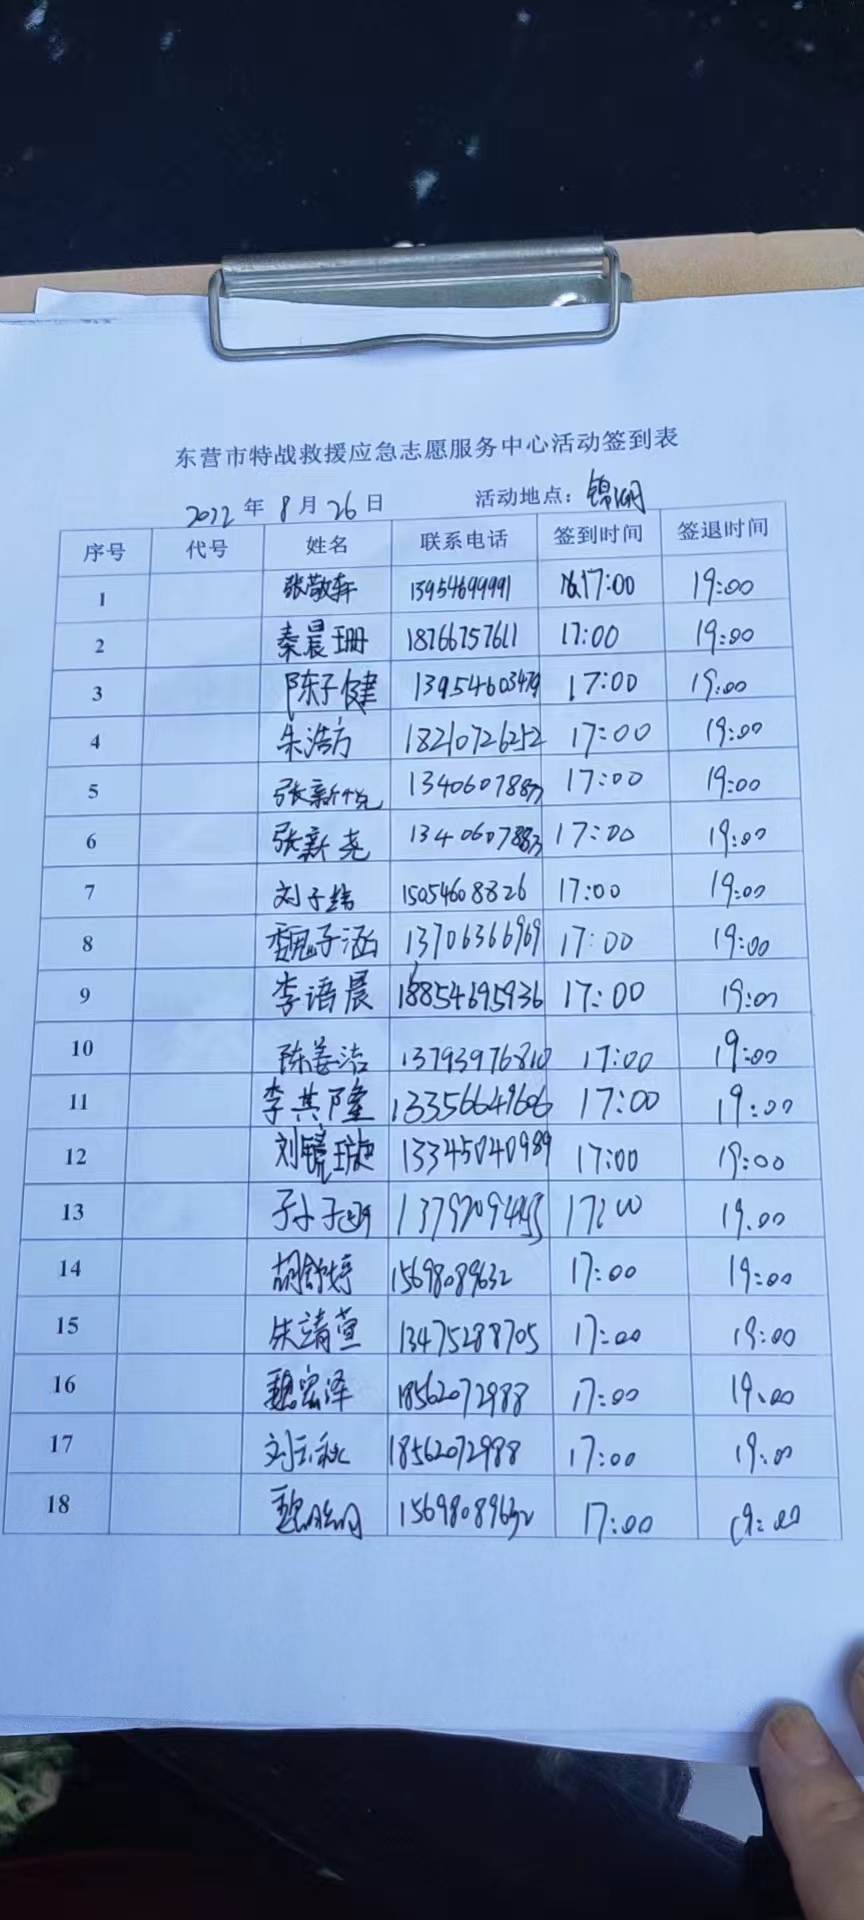 东营市特战救援应急志愿服务中心活动签到表
2022年8月26日 活动地点：锦湖
序号 代号 姓名 联系电话 签到时间 签退时间
1 张敬轩 13954699991 17:00 19:00
2 秦晨珊 18766757611 17:00 19:00
3 陈子健 13954603479 17:00 19:00
4 朱浩方 18210726252 17:00 19:00
5 张新悦 1340607883 17:00 19:00
6 张新尧 1340607883 17:00 19:00
7 刘子 15054608826 17:00 19:00
8 魏子涵 13706366969 17:00 19:00
9 李语晨 18854695936 17:00 19:00
10 陈姜洁 13793976810 17:00 19:00
11 李其隆 13356649606 17:00 19:00
12 刘镜璇 13345040989 17:00 19:00
13 17:00 19.00
14 胡舒婷 15698089632 17:00 19:00
15 朱靖萱 13475288705 17:00 19:00
16 魏宏泽 18562072988 17:00 19:00
17 刘玉秋 18562072988 17:00 19:00
18 15698089632 17:00 19:00